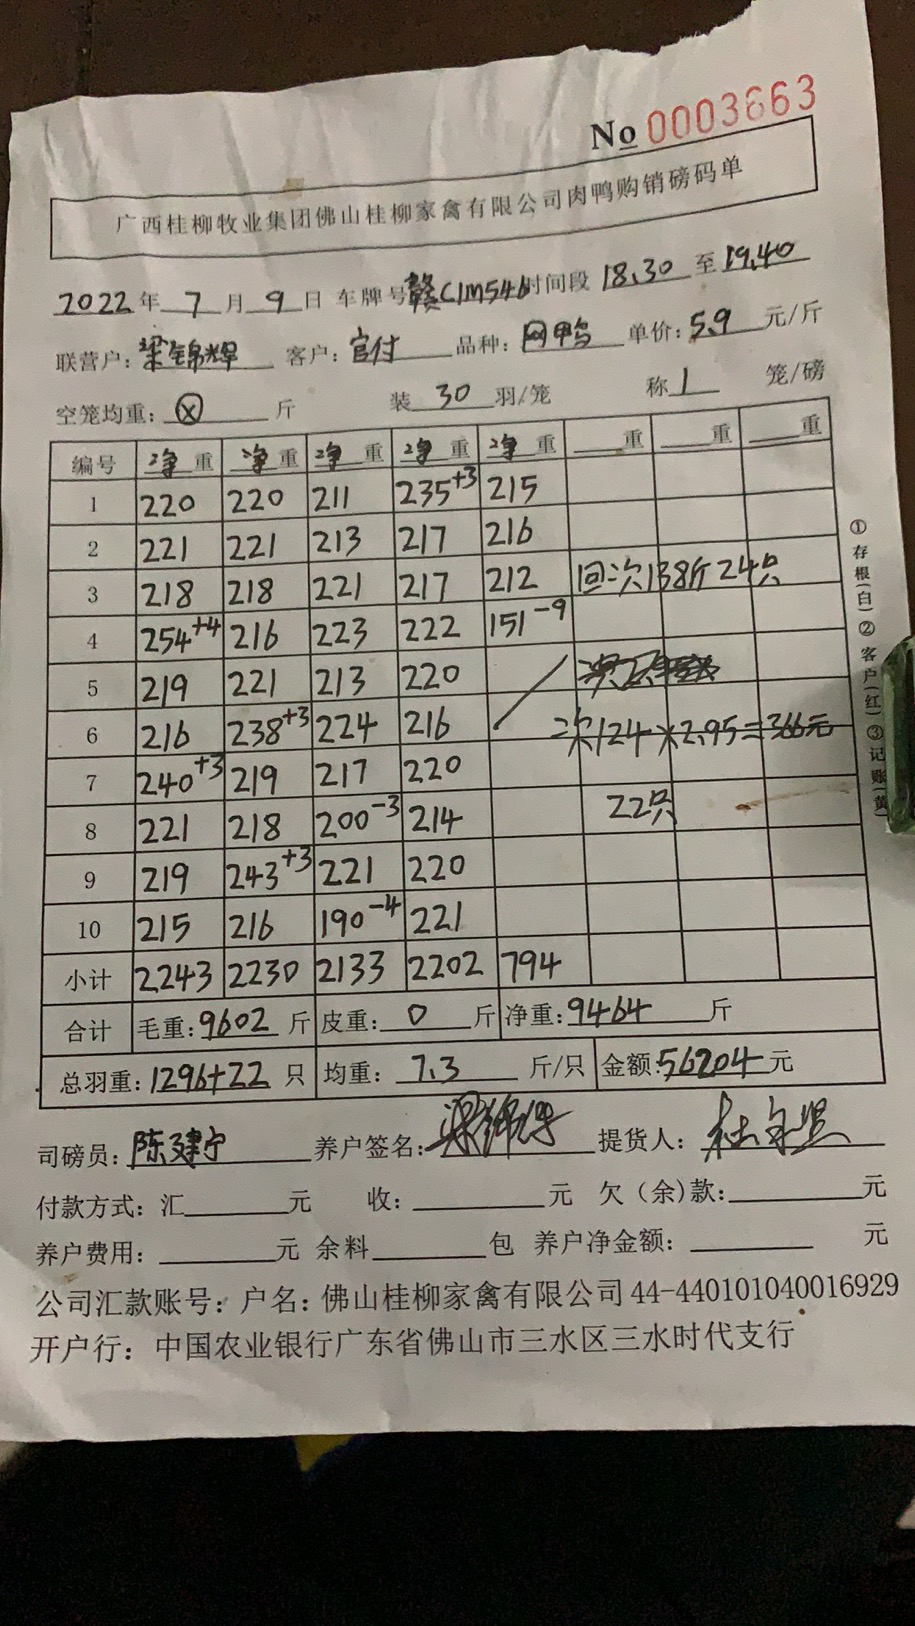 No 0003663
广西桂柳牧业集团佛山桂柳家禽有限公司肉鸭购销磅码单
2022年 7 月 9 日 车牌号 赣C1M546 时间段 18.30 至 19.40
联营户: 梁锦辉 客户: 官付 品种: 网鸭 单价: 5.9 元/斤
空笼均重: ⓧ 斤 装 30 羽/笼 称 1 笼/磅
编号 净重 净重 净重 净重 净重 重 重 重
1 220 220 211 235+3 215
2 221 221 213 217 216
3 218 218 221 217 212 回次138斤24只
4 254+4 216 223 222 151-9
5 219 221 213 220
6 216 238+3 224 216 次124×2.95=366元
7 240+3 219 217 220
8 221 218 200-3 214 22只
9 219 243+3 221 220
10 215 216 190-4 221
小计 2243 2230 2133 2202 794
合计 毛重: 9602 斤 皮重: 0 斤 净重: 9464 斤
总羽重: 1296+22 只 均重: 7.3 斤/只 金额 56204 元
司磅员: 陈建宁 养户签名: 提货人:
付款方式: 汇 元 收: 元 欠（余)款: 元
养户费用: 元 余料 包 养户净金额: 元
公司汇款账号: 户名: 佛山桂柳家禽有限公司 44-440101040016929
开户行: 中国农业银行广东省佛山市三水区三水时代支行
①存根(白)②客户(红)③记账(黄)